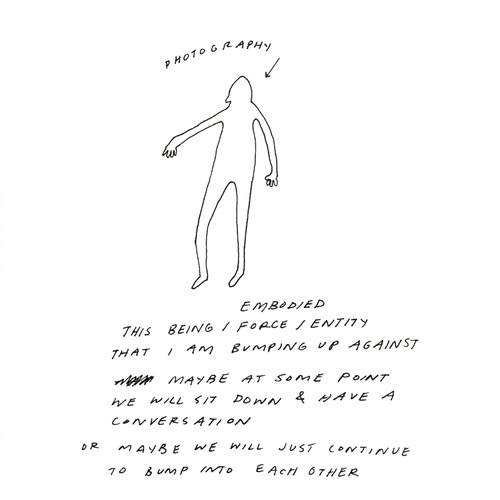 PHOTOGRAPHY
EMBODIED
THIS BEING / FORCE / ENTITY
THAT I AM BUMPING UP AGAINST
MAYBE AT SOME POINT
WE WILL SIT DOWN & HAVE A
CONVERSATION
OR MAYBE WE WILL JUST CONTINUE
TO BUMP INTO EACH OTHER